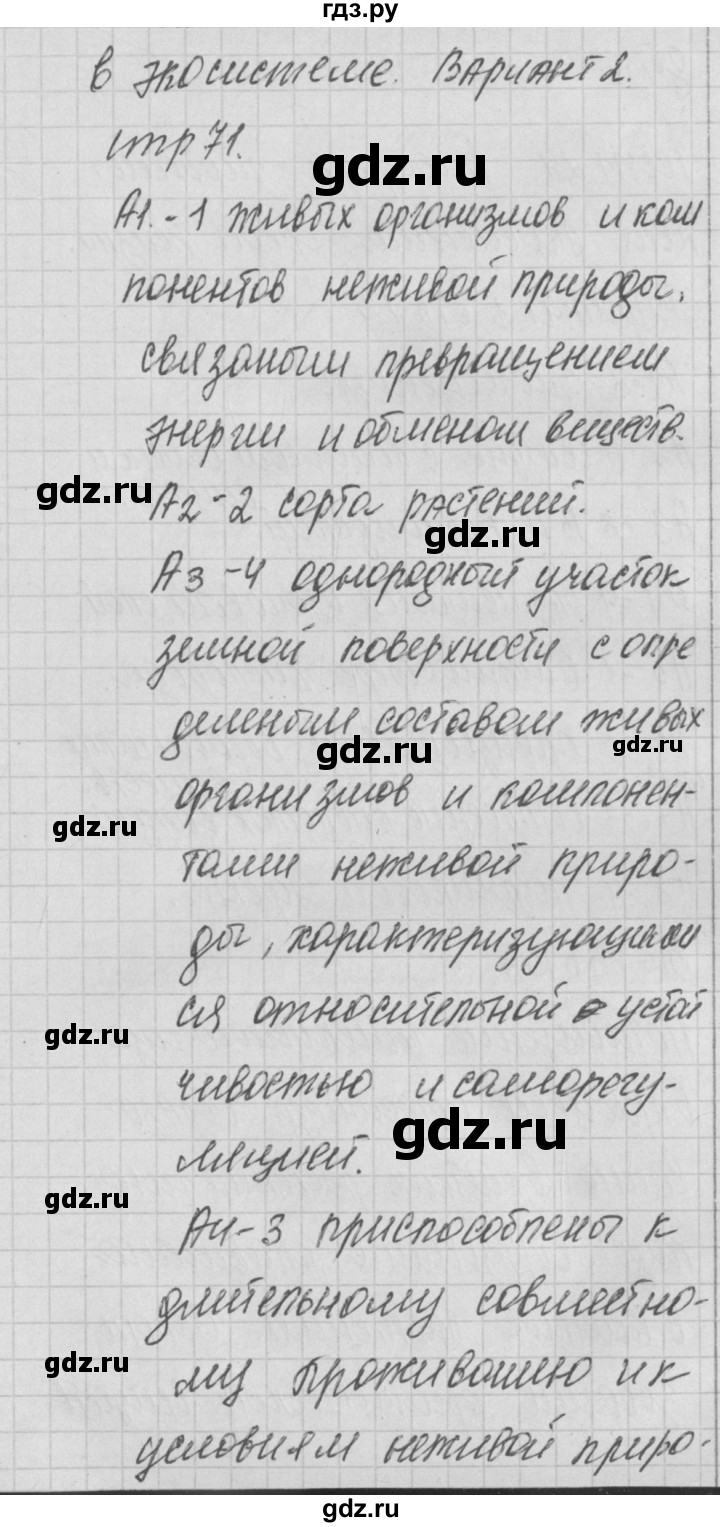 гдз.ру
в экосистеме. Вариант 2.
стр 71.
gdz.ru
А1.-1 живых организмов и ком
понентов неживой природы,
связаным превращением
энергии и обменом веществ.
gdz.ru
А2-2 сорта растений.
gdz.ru
А3-4 однородный участок
земной поверхности с опре
деленым составом живых
gdz.ru
gdz.ru
организмов и компонен-
gdz.ru
тами неживой приро-
ды, характеризующимися
ся относительной устой
gdz.ru
чивостью и саморегу-
gdz.ru
ляцией.
gdz.ru
А4-3 приспособлены к
длительному совместно-
gdz.ru
му проживанию и к
условиям неживой приро-
gdz.ru